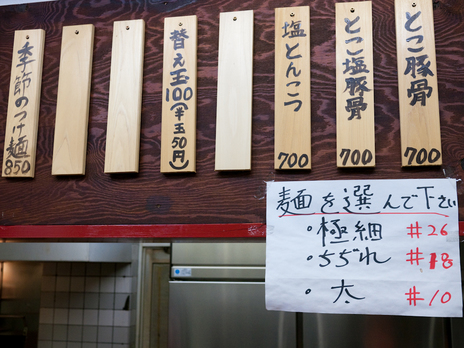 とこ豚骨
700
とこ塩豚骨
700
塩とんこつ
700
替え玉
100
(半玉
50円)
季節のつけ麺
850
麺を選んで下さい
・極細 #26
・ちぢれ #18
・太 #10